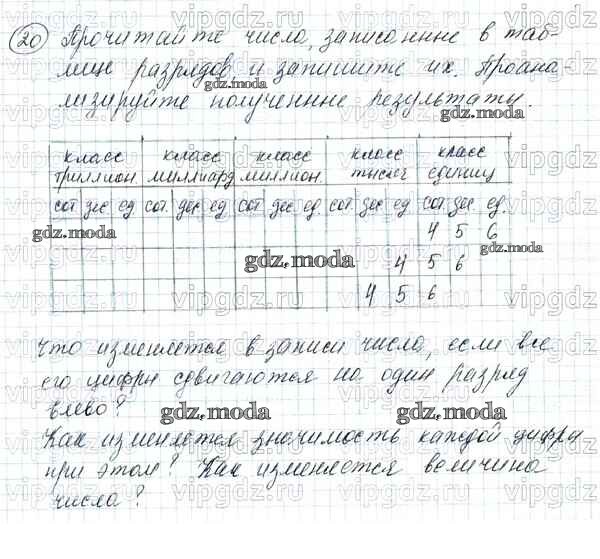 20 Прочитайте числа, записанные в таб-
лице разрядов, и запишите их. Проана-
лизируйте полученные результаты.
gdz.moda gdz.moda
класс класс класс класс класс
триллион. миллиард миллион. тысяч единиц
сот дес ед сот. дес ед сот дес ед. сот. дес ед сот. дес ед.
4 5 6
gdz.moda gdz.moda
gdz.moda
4 5 6
4 5 6
Что изменяется в записи числа, если все
его цифры сдвигаются на один разряд
влево?
gdz.moda gdz.moda
Как изменяется значимость каждой цифры
при этом? Как изменяется величина
числа?
vipgdz.ru